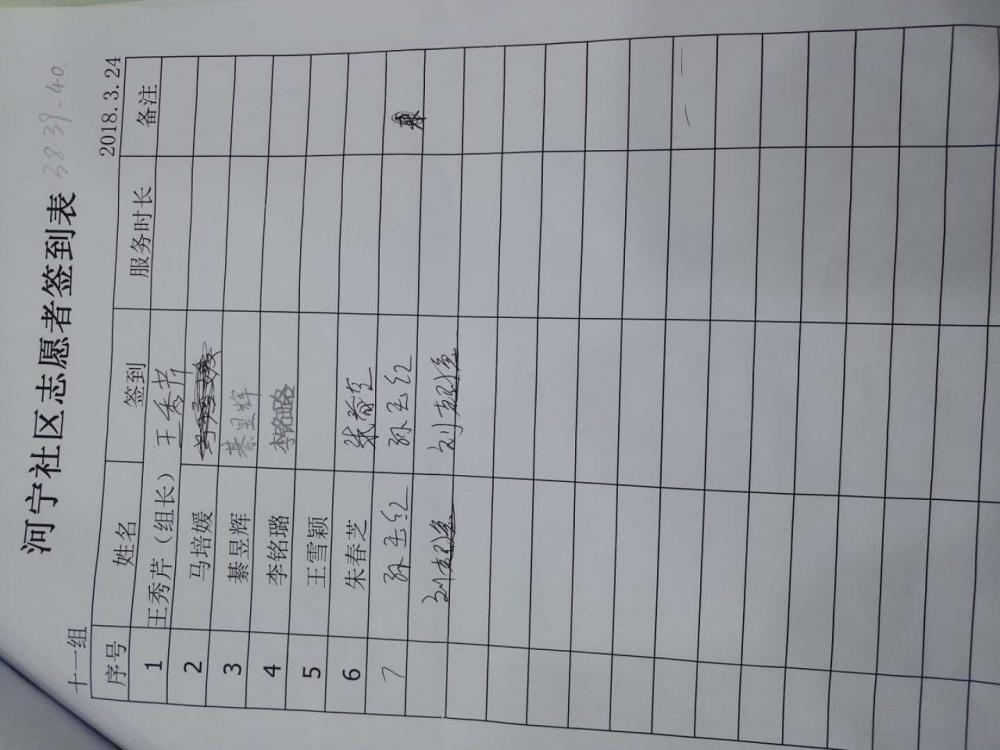 河宁社区志愿者签到表
38.39.40.
十一组
2018.3.24
序号 姓名 签到 服务时长 备注
1 王秀芹（组长） 王秀芹
2 马培媛
3 綦昱辉 綦昱辉
4 李铭璐 李铭璐
5 王雪颖
6 朱春芝 朱春芝
7 孙玉红 孙玉红